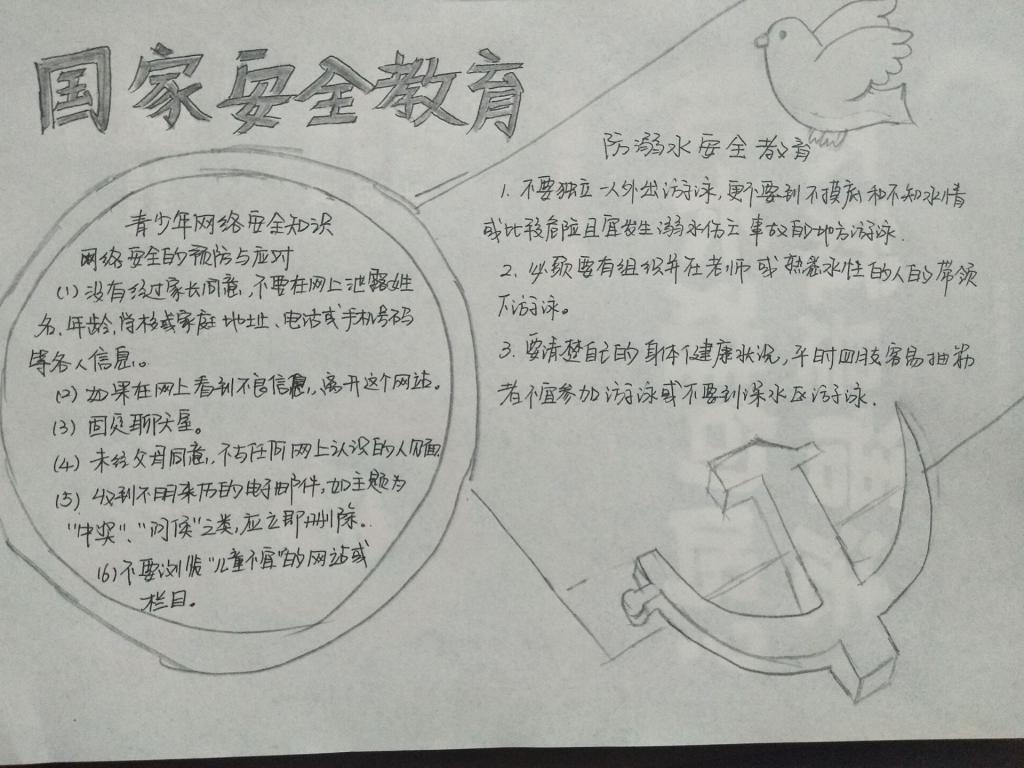 国家安全教育
青少年网络安全知识
网络安全的预防与应对
(1) 没有经过家长同意,不要在网上泄露姓
名、年龄、学校或家庭地址、电话或手机号码
等各人信息。
(2) 如果在网上看到不良信息,离开这个网站。
(3) 因见聊天星。
(4) 未经父母同意,不与任何网上认识的人见面
(5) 收到不明来历的电子邮件,如主题为
"中奖"、"问候"之类,应立即删除。
(6) 不要浏览"儿童不宜"的网站或
栏目。
防溺水安全教育
1. 不要独立一人外出游泳,更不要到不摸底和不知水情
或比较危险且宜发生溺水伤亡事故的地方游泳.
2. 必须要有组织并在老师或熟悉水性的人的带领
下游泳。
3. 要清楚自己的身体健康状况,平时四肢容易抽筋
者不宜参加游泳或不要到深水区游泳.